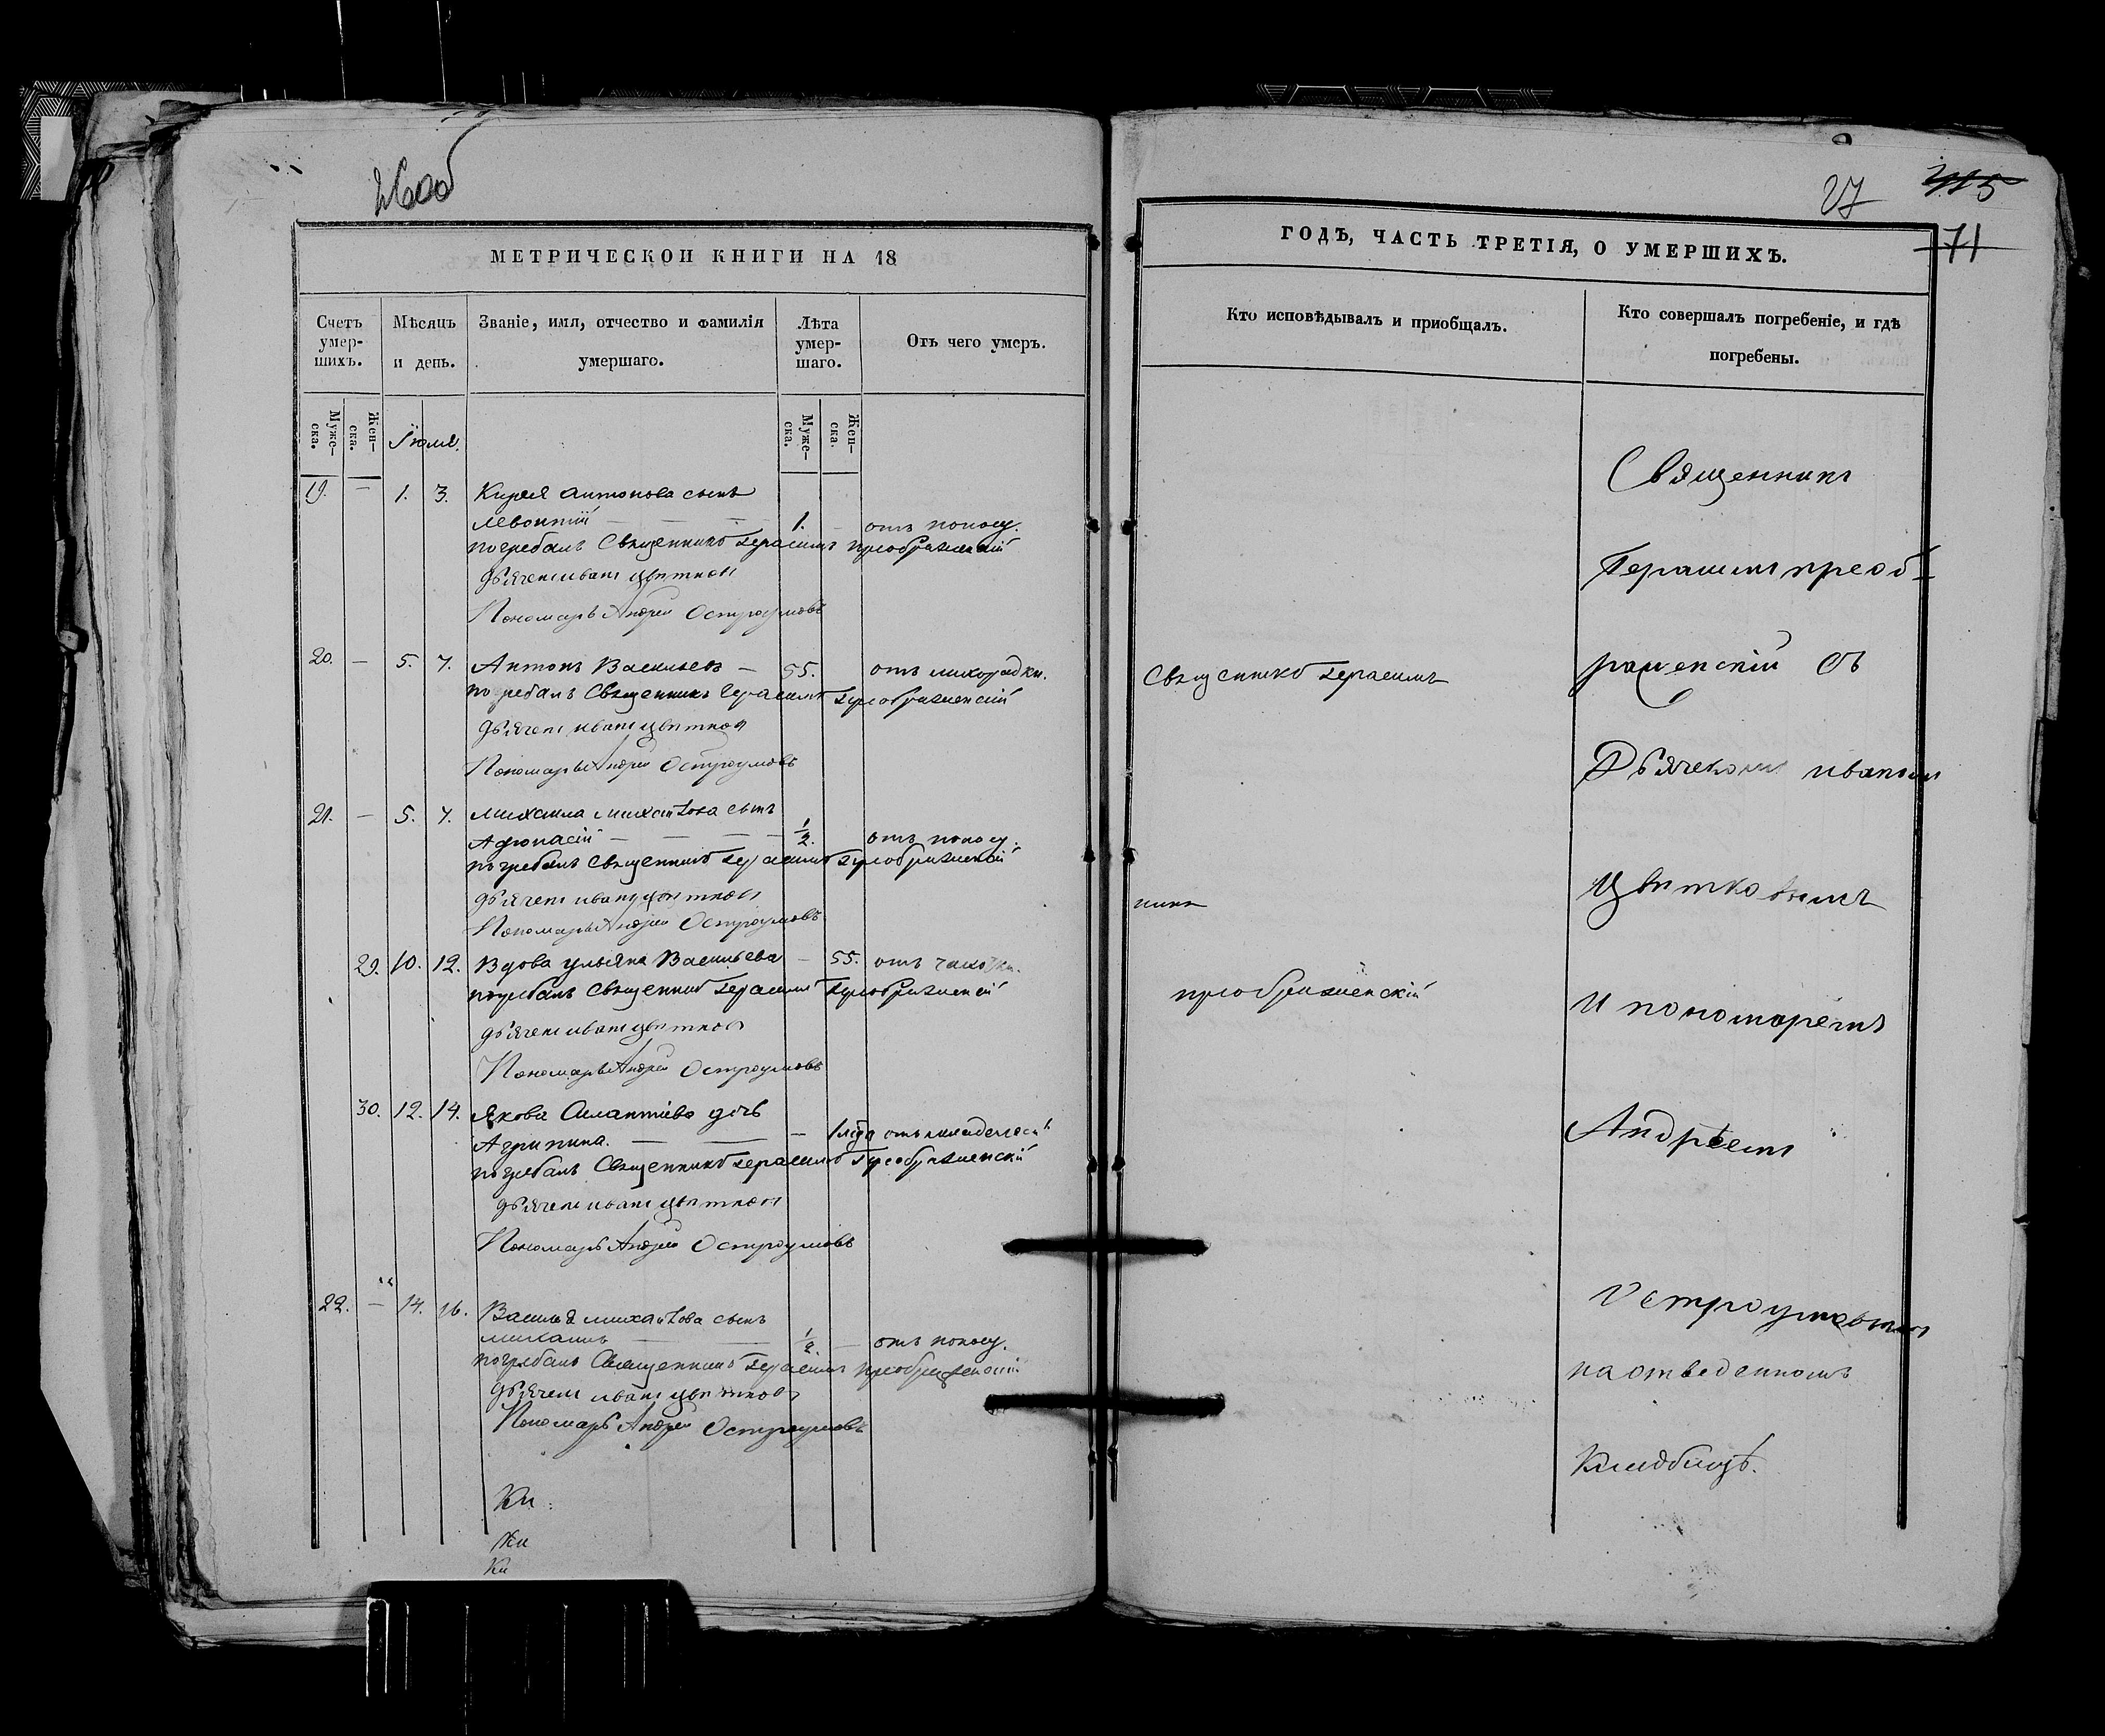 26об
МЕТРИЧЕСКОЙ КНИГИ НА 18
Счетъ умер-шихъ.
Мѣсяцъ и день.
Званіе, имя, отчество и фамилія умершаго.
Лѣта умер-шаго.
Отъ чего умеръ.
Муже-ска.
Жен-ска.
Муже-ска.
Жен-ска.
Іюля.
19. — 1. 3. Кирея Антонова сынъ
Левонтій — — — 1. отъ поносу.
погребалъ Священникъ Герасимъ Преображенскій
дьячекъ иванъ цвѣтковъ
Пономарь Андрей Остроумовъ
20. — 5. 7. Антонъ Васильевъ — 55. отъ лихорадки.
погребалъ Священникъ Герасимъ Преображенскій
дьячекъ иванъ цвѣтковъ
Пономарь Андрей Остроумовъ
21. — 5. 7. Михаила Михайлова сынъ
Афонасій — — — 1/2. отъ поносу.
погребалъ Священникъ Герасимъ Преображенскій
дьячекъ иванъ цвѣтковъ
Пономарь Андрей Остроумовъ
29. 10. 12. Вдова ульяна Васильева — 55. отъ чахотки.
погребалъ Священникъ Герасимъ Преображенскій
дьячекъ иванъ цвѣтковъ
Пономарь Андрей Остроумовъ
30. 12. 14. Якова дочь
Агрипина. — — — 1 года отъ
погребалъ Священникъ Герасимъ Преображенскій
дьячекъ иванъ цвѣтковъ
Пономарь Андрей Остроумовъ
22. — 14. 16. Василья Михайлова сынъ
— — 1/2. — отъ поносу.
погребалъ Священникъ Герасимъ Преображенскій
дьячекъ иванъ цвѣтковъ
Пономарь Андрей Остроумовъ
27
71
ГОДЪ, ЧАСТЬ ТРЕТІЯ, О УМЕРШИХЪ.
Кто исповѣдывалъ и приобщалъ.
Кто совершалъ погребеніе, и гдѣ погребены.
Священникъ Герасимъ
преображенскій
Священникъ
Герасимъ преоб-
раженскій Съ
Дьячекомъ иваномъ
Цвѣтковымъ
и пономаремъ
Андреемъ
Остроумовымъ
на отведенномъ
Кладбищѣ.